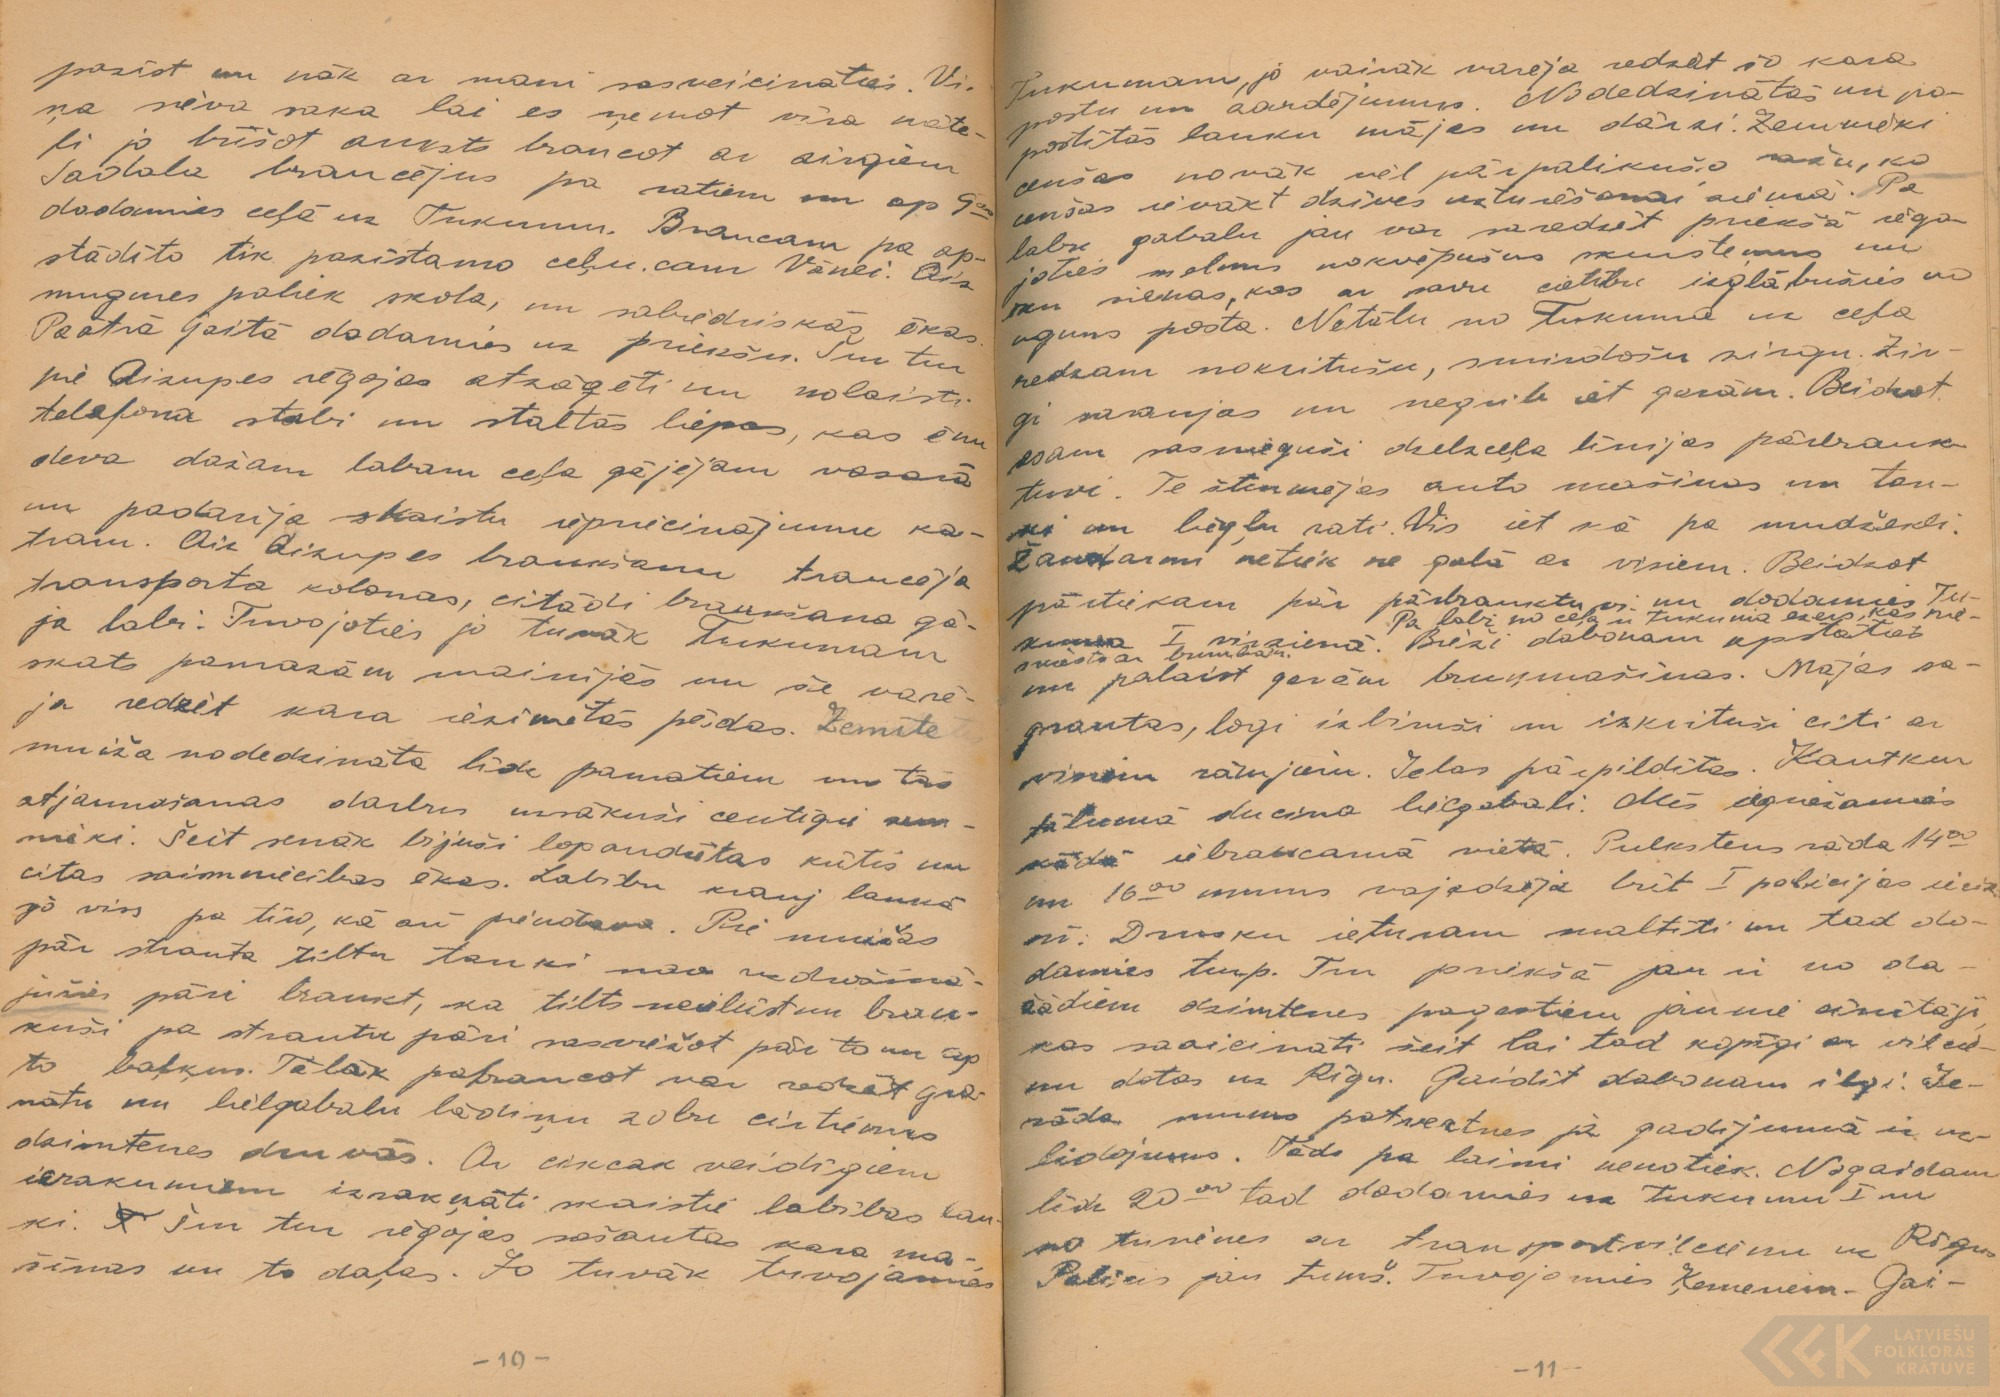 pazīst un nāk ar mani sasveicināties. Vi-
ņa sieva saka lai es ņemot vīra mēte-
li jo būšot auksts braucot ar zirgiem
Sadala braucējus pa ratiem un ap 9ºº
dodamies ceļā uz Tukumu. Braucam pa ap-
stādīto tik pazīstamo ceļu cauri Vānei. Aiz
muguras paliek skola, un sabiedriskās ēkas.
Paātrā gaitā dodamies uz priekšu. Šur tur
pie Aizupes rēgojas atzāģēti un nolaisti
telefona stabi un staltās liepas, kas ēnu
deva dažam labam ceļa gājējam vasarā
un padarīja skaistu iepriecinājumu ka-
tram. Aiz Aizupes braukšanu traucēja
transporta kolonas, citādi braukšana gā-
ja labi. Tuvojoties jo tuvāk Tukumam
skats pamazām mainījās un še varē-
ja redzēt kara iezīmētās pēdas. Zemīte
muiža nodedzināta līdz pamatiem un tās
atjaunošanas darbus uzsākuši centīgie zem-
nieki. Šeit senāk bijuši lopandūtas kūtis un
citas saimniecības ēkas. Labību krauj laukā
jo viss pa tīro, kā arī pienotava. Pie muižas
pār strauta tiltu tanki nav uzdrošinā-
jušies pāri braukt, ka tilts neielūst un brau-
kuši pa strautu pāri sasviežot pār to un ap
to baļķus. Tālāk pabraucot var redzēt gra-
nātu un lielgabalu lādiņu zobu cirtienus
dzimtenes druvās. Ar cikcak veidīgiem
ierakumiem izrakņāti skaistie labības lau-
ki. Šur tur rēgojas sašautas kara ma-
šīnas un to daļas. Jo tuvāk tuvojamies
-10-
Tukumam, jo vairāk varēja redzēt šo kara
postu un aardējumus. Nodedzinātās un po-
postītās lauku mājas un dārzi. Zemnieki
cenšas novāk vēl pārpalikušo ražu, ko
cenšas ievākt dzīves uzturēšanai ziemā. Pa
labu gabalu jau var saredzēt priekšā rēgo-
joties melnus nokvēpušus skursteņus un
mu sienas, kas ar savu cietību izglābušies no
uguns posta. Netālu no Tukuma uz ceļa
redzam nokritušu, smirdošu zirgu. Zir-
gi saraujas un negrib iet garām. Beidzot
esam sasnieguši dzelzceļa līnijas pārbrauk
tuvi. Te šturmējas auto mašīnas un tan-
ki un bēgļu rati. Vis iet kā pa mudžekli.
Žandarmi netiek ne galā ar visiem. Beidzot
pārtiekam pār pārbrauktuvi un dodamies Tu-
Pa labi no ceļa ir Tukuma ezers, kas pie-
kuma I virzienā. Bieži dabonam apstāties
sviests ar bumbām.
un palaist garām brukmašīnas. Mājas sa-
grautas, logi izbiruši un izkrituši citi ar
visiem rāmjiem. Ielas pārpildītas. Kautkur
tālumā ducina lielgabali. Mēs iegriežamies
kādā iebraucamā vietā. Pulkstens rāda 14ºº
un 16ºº mums vajadzēja būt I policijas iecir
nī. Drusku ieturam maltīti un tad do-
damies turp. Tur priekšā jau ir no da-
žādiem dzimtenes pagastiem jaunie cīnītāji
kas saaicināti šeit lai tad kopīgi ar vilcie-
nu dotos uz Rīgu. Gaidīt dabonam ilgi. Ie-
rāda mums patvertnes ja gadījumā ir uz-
lidojums. Tāds pa laimi nenotiek. Nogaidam
līdz 20ºº tad dodamies uz Tukumu I un
no turienes ar transportvilcienu uz Rīgu
Palicis jau tumš. Tuvojamies Ķemeriem. Gai-
-11-
LATVIEŠU
FOLKLORAS
KRĀTUVE